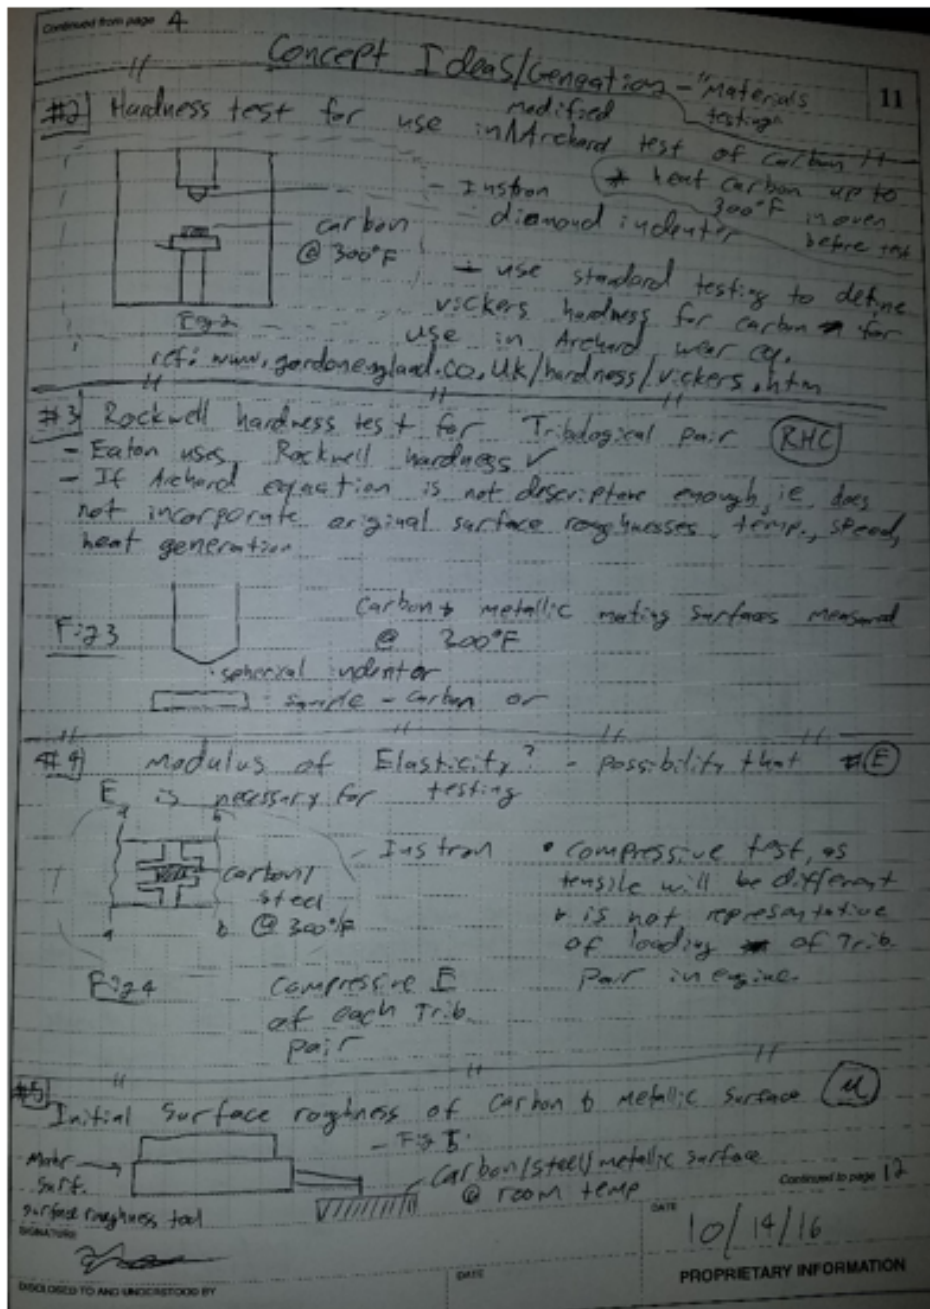 Continued from page 4
Concept Ideas/Geneation - "Materials testing"
11
#2 Hardness test for use in modified Archard test of Carbon
* heat carbon up to
300°F in oven
before test
- Instron
diamond indenter
carbon
@ 300°F
- use standard testing to define
vickers hardness for carbon for
use in Archard wear eq.
Fig 2
ref: www.gordonengland.co.uk/hardness/vickers.htm
#3 Rockwell hardness test for Tribological pair RHC
- Eaton uses Rockwell hardness ✓
- If Archard equation is not descriptive enough, ie does
not incorporate original surface roughnesses, temp., speed,
heat generation
Carbon & metallic mating surfaces measured
@ 300°F
Fig 3
spherical indentor
sample - carbon or
#4 Modulus of Elasticity? - possibility that E
E is necessary for testing
- Instron
carbon/
steel
@ 300°F
• compressive test, as
tensile will be different
& is not representative
of loading of Trib.
pair in engine.
Fig 4
compressive E
of each Trib.
pair
#5 Initial Surface roughness of Carbon & Metallic Surface u
- Fig 5
Surf.
surface roughness tool
Carbon/steel/metallic surface
@ room temp
Continued to page 12
SIGNATURE
DATE
10/14/16
DISCLOSED TO AND UNDERSTOOD BY
DATE
PROPRIETARY INFORMATION